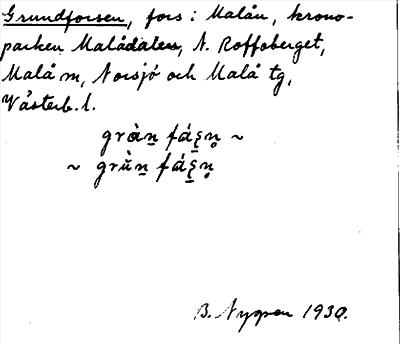 Grundforsen, fors i Malån, krono-
parken Malådalen, N. Roffoberget,
Malå sn, Norsjö och Malå tg,
Västerb. l.
gràn̲ fá ~
~ grǜn̲ fá
B. Nygren 1930.